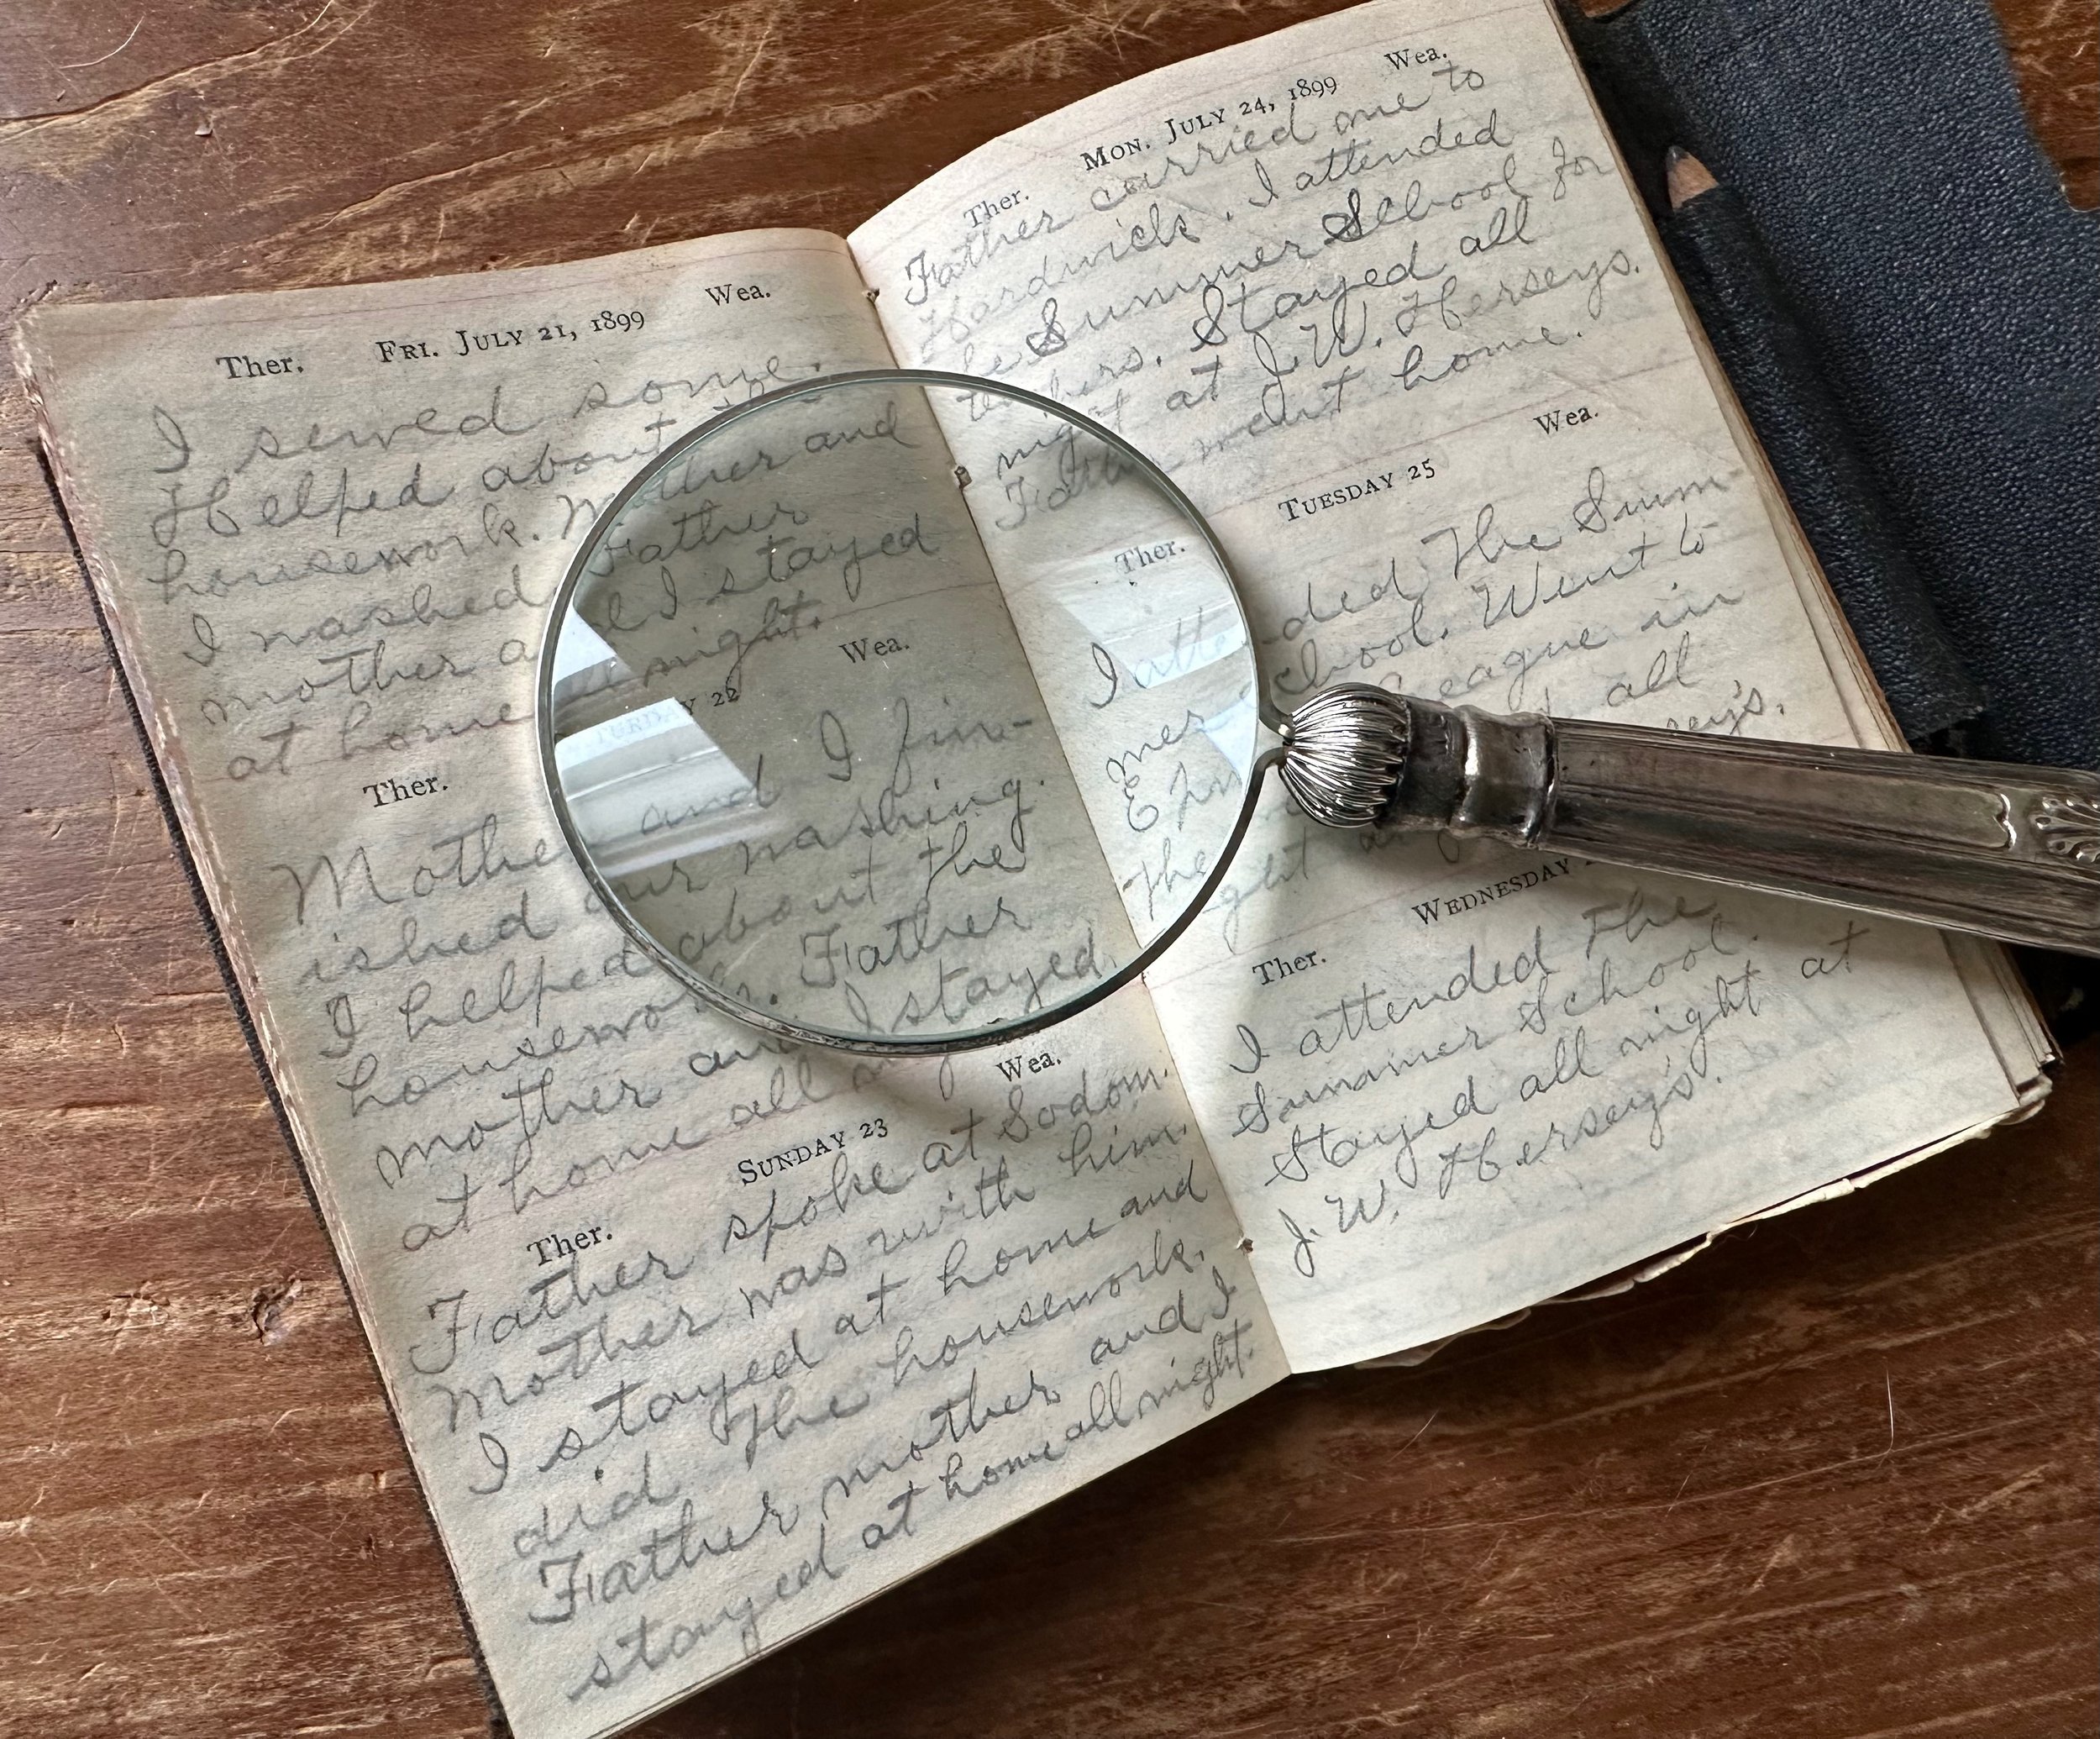 Ther. FRI. JULY 21, 1899 Wea.
I sewed some.
Helped about the
housework. Mother and
I washed Father
mother and I stayed
at home all night.
Ther. SATURDAY 22 Wea.
Mother and I fin-
ished our washing.
I helped about the
housework. Father
mother and I stayed
at home all night
Ther. SUNDAY 23 Wea.
Father spoke at Sodom.
Mother was with him.
I stayed at home and
did the housework.
Father mother and I
stayed at home all night.
Ther. MON. JULY 24, 1899 Wea.
Father carried me to
Hardwick. I attended
the Summer School for
teachers. Stayed all
night at J. W. Herseys.
Father went home.
Ther. TUESDAY 25 Wea.
I attended The Sum-
mer School. Went to
League in
The all
Ther. WEDNESDAY
I attended The
Summer School.
Stayed all night at
J. W. Hersey's.